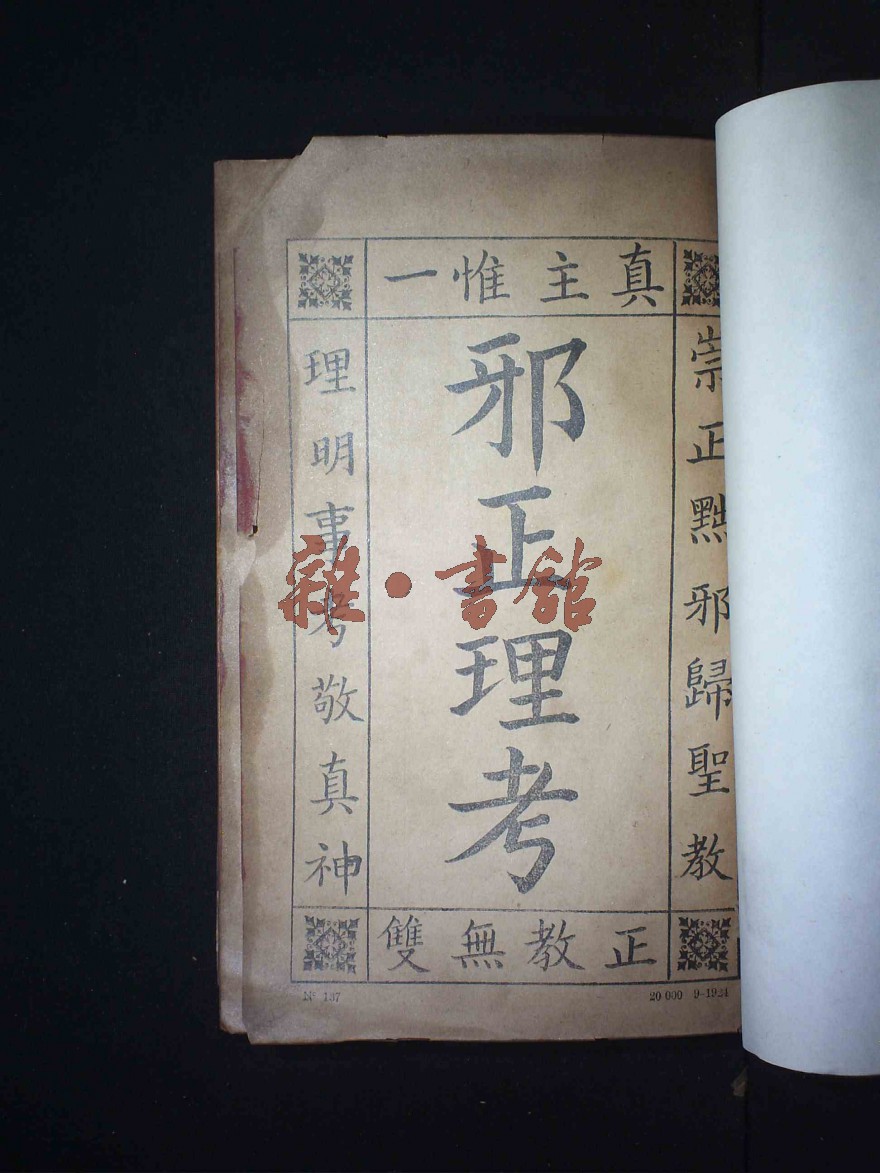 真主惟一
崇正黜邪歸聖教
邪正理考
理明事考敬真神
正教無雙
Nº 137
20 000 9-1924
雜·書館